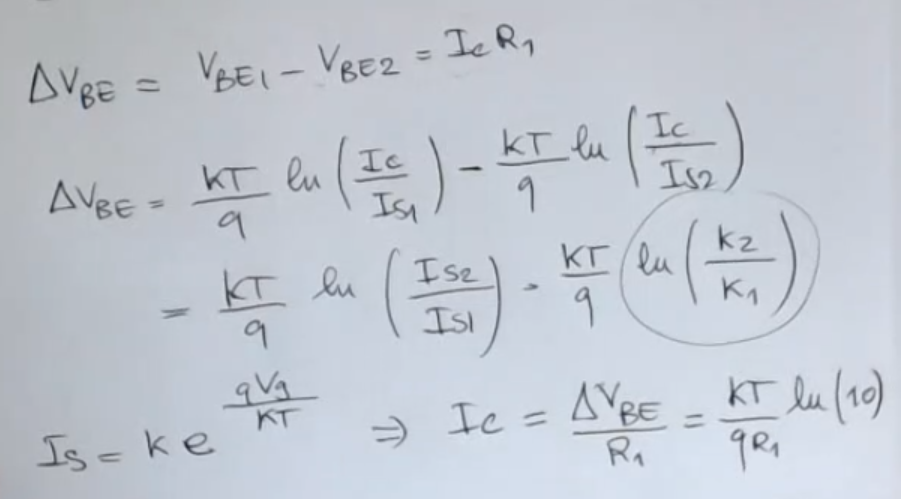 ΔV_BE = V_BE1 - V_BE2 = I_C R_1
ΔV_BE = KT/q ln(I_C/I_S1) - KT/q ln(I_C/I_S2)
= KT/q ln(I_S2/I_S1) - KT/q ln(K_2/K_1)
I_S = K e^(qVg/KT) ⇒ I_C = ΔV_BE/R_1 = KT/qR_1 ln(10)